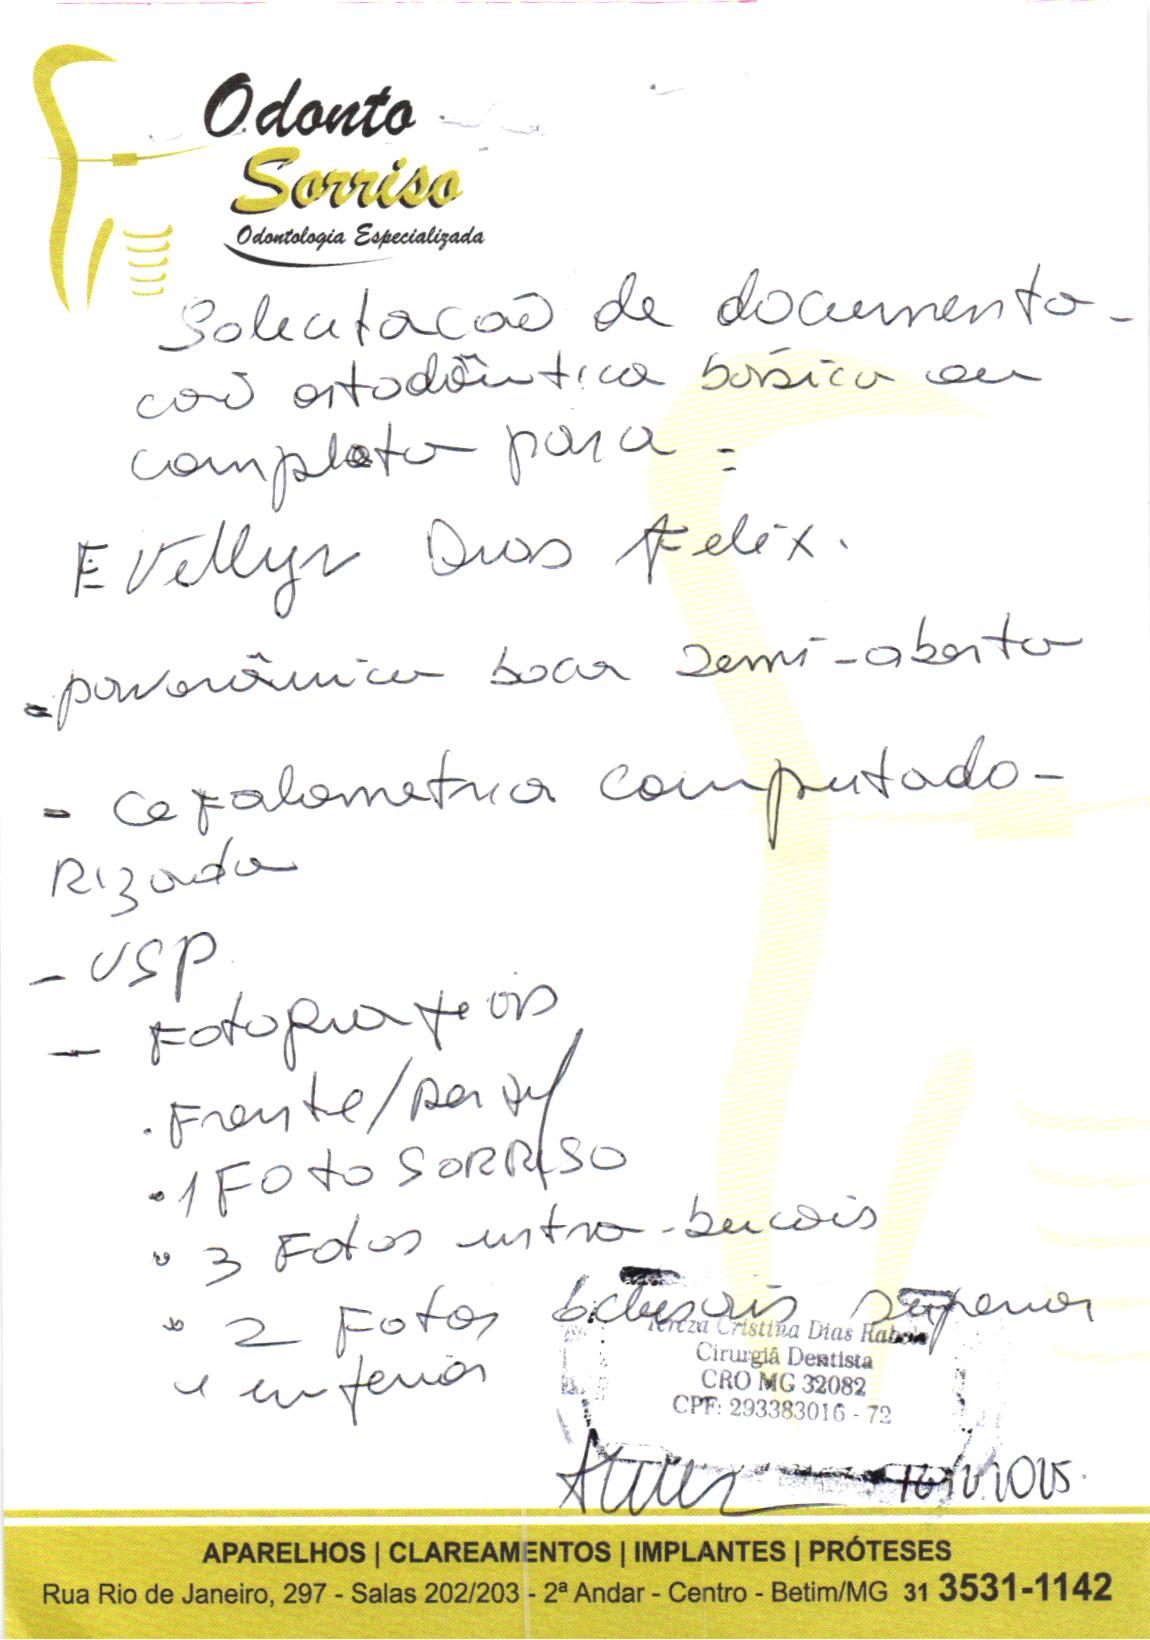 Odonto
Sorriso
Odontologia Especializada
Solicitacaõ de documenta-
caõ ortodôntica básica ou
completa para =
Evellyn Dias Felix.
- panorâmica boca semi-aberta
- Cefalometria computado-
Rizada
- USP
- Fotografias
. Frente/perfil
. 1 FOTO SORRISO
. 3 Fotos intra-bucais
. 2 Fotos oclusais superior
e inferior
Tereza Cristina Dias
Cirurgiã Dentista
CRO MG 32082
CPF: 293383016 - 72
APARELHOS | CLAREAMENTOS | IMPLANTES | PRÓTESES
Rua Rio de Janeiro, 297 - Salas 202/203 - 2ª Andar - Centro - Betim/MG 31 3531-1142